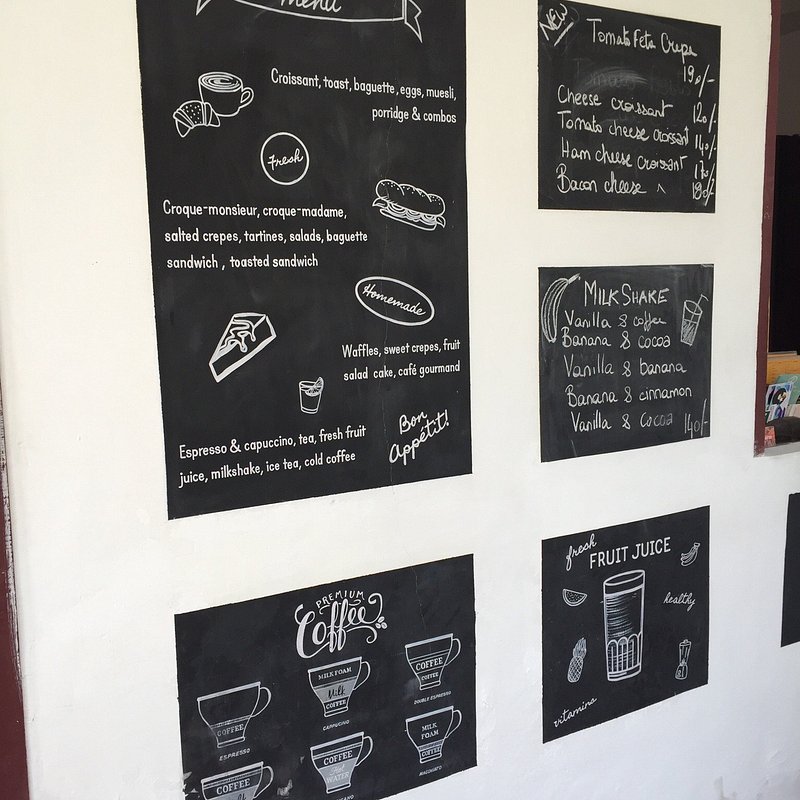 Menu
Croissant, toast, baguette, eggs, muesli,
porridge & combos
Fresh
Croque-monsieur, croque-madame,
salted crepes, tartines, salads, baguette
sandwich, toasted sandwich
Homemade
Waffles, sweet crepes, fruit
salad cake, café gourmand
Espresso & capuccino, tea, fresh fruit
juice, milkshake, ice tea, cold coffee
Bon
Appétit!
NEW!
Tomato Feta Crepe
190/-
Cheese croissant 120/-
Tomato cheese croissant 140/-
Ham cheese croissant 170/-
Bacon cheese 180/-
MILKSHAKE
Vanilla & coffee
Banana & cocoa
Vanilla & banana
Banana & cinnamon
Vanilla & cocoa 140/-
PREMIUM
Coffee
COFFEE
ESPRESSO
MILK FOAM
Milk
COFFEE
CAPPUCINO
COFFEE
COFFEE
DOUBLE ESPRESSO
COFFEE
Milk
COFFEE
Hot
WATER
MILK
FOAM
COFFEE
MACCHIATO
fresh
FRUIT JUICE
healthy
vitamins